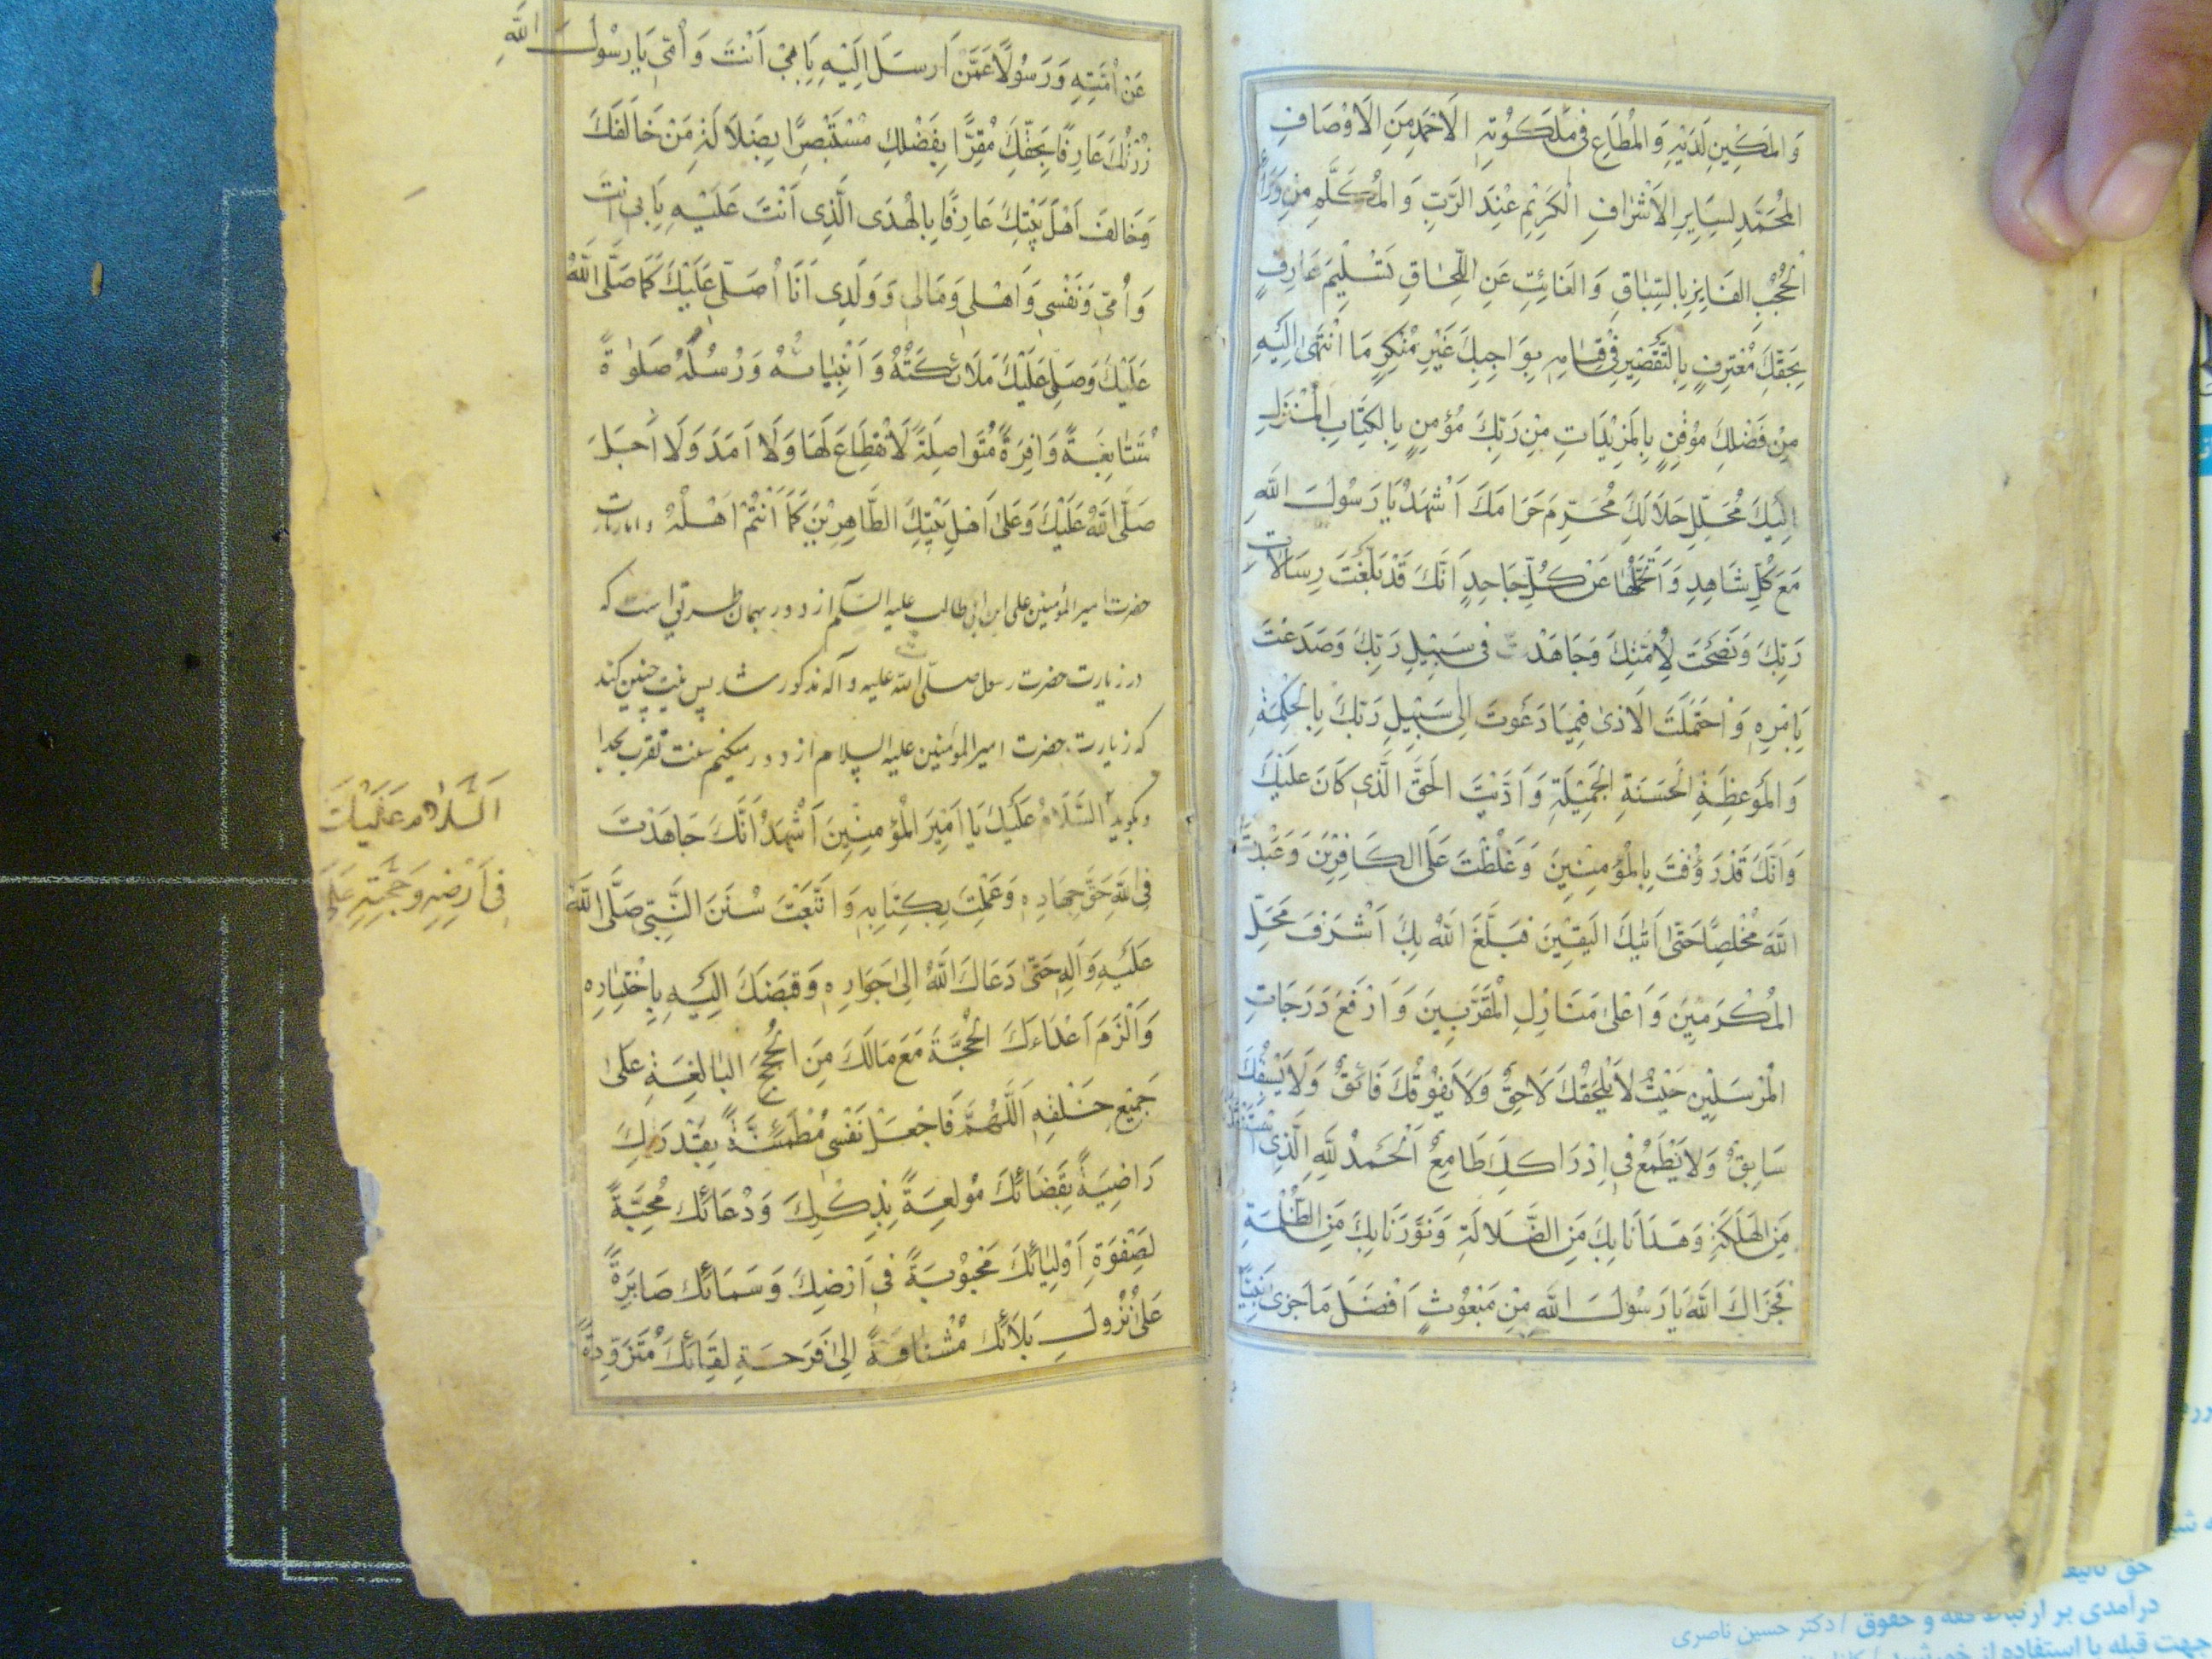 وَالمَكِينِ لَدَيْهِ وَالمُطَاعِ فِي مَلَكُوتِهِ الاَحْمَدِ مِنَ الاَوْصَافِ
المُحَمَّدِ لِسَايِرِ الاَشْرَافِ الْكَرِيْمِ عِنْدَ الرَّبِّ وَالمُكَلَّمِ مِنْ وَرَآءِ
الحُجُبِ الفَايِزِ بِالسِّبَاقِ وَالفَائِتِ عَنِ اللِّحَاقِ تَسْلِيْمَ عَارِفٍ
بِحَقِّكَ مُعْتَرِفٍ بِالتَّقْصِيْرِ فِي قِيَامِهِ بِوَاجِبِكَ غَيْرِ مُنْكِرٍ مَا انْتَهَى اِلَيْهِ
مِنْ فَضْلِكَ مُوْقِنٍ بِالمَزِيْدَاتِ مِنْ رَبِّكَ مُؤْمِنٍ بِالكِتَابِ المُنْزَلِ
اِلَيْكَ مُحَلِّلٍ حَلاَلَكَ مُحَرِّمٍ حَرَامَكَ اَشْهَدُ يَا رَسُولَ اللّٰهِ
مَعَ كُلِّ شَاهِدٍ وَاَتَحَمَّلُهَا عَنْ كُلِّ جَاحِدٍ اَنَّكَ قَدْ بَلَّغْتَ رِسَالاَتِ
رَبِّكَ وَنَصَحْتَ لِأُمَّتِكَ وَجَاهَدْتَ فِي سَبِيْلِ رَبِّكَ وَصَدَعْتَ
بِاَمْرِهِ وَاحْتَمَلْتَ الاَذىٰ فِيمَا دَعَوتَ اِلىٰ سَبِيْلِ رَبِّكَ بِالحِكْمَةِ
وَالمَوعِظَةِ الحَسَنَةِ الجَمِيْلَةِ وَاَدَّيْتَ الحَقَّ الَّذِي كَانَ عَلَيْكَ
وَاَنَّكَ قَدْ رَؤُفْتَ بِالمُؤْمِنِينَ وَغَلُظْتَ عَلَى الكَافِرِيْنَ وَعَبَدْتَ
اللّٰهَ مُخْلِصًا حَتّىٰ اَتٰيكَ اليَقِيْنَ فَبَلَّغَ اللهُ بِكَ اَشْرَفَ مَحَلِّ
المُكْرَمِيْنَ وَاَعْلىٰ مَنَازِلِ الْمُقَرَّبِينَ وَاَرْفَعَ دَرَجَاتِ
الْمُرْسَلِيْنَ حَيْثُ لاَ يَلْحَقُكَ لاَحِقٌ وَلاَ يَفُوْقُكَ فَائِقٌ وَلاَ يَسْبِقُكَ
سَابِقٌ وَلاَ يَطْمَعُ فِي اِدْرَاكِكَ طَامِعٌ اَلْحَمْدُ لِلّٰهِ الَّذِي اسْتَنْقَذَنَا
مِنَ الهَلَكَةِ وَهَدَانَا بِكَ مِنَ الضَّلاَلَةِ وَنَوَّرَنَا بِكَ مِنَ الظُّلْمَةِ
فَجَزَاكَ اللّٰهُ يَا رَسُولَ اللّٰهِ مِنْ مَبْعُوثٍ اَفْضَلَ مَا جَزىٰ نَبِيًّا
عَنْ اُمَّتِهِ وَرَسُولاً عَمَّنْ اَرسَلَ اِلَيْهِ بِاَبِيْ اَنْتَ وَاُمِّي يَا رَسُولَ اللّٰهِ
زُرْتُكَ عَارِفًا بِحَقِّكَ مُقِرًّا بِفَضْلِكَ مُسْتَبْصِرًا بِضَلاَلَةِ مَنْ خَالَفَكَ
وَخَالَفَ اَهْلَ بَيْتِكَ عَارِفًا بِالهُدَى الَّذِي اَنْتَ عَلَيْهِ بِاَبي انت
وَاُمّي وَنَفْسِي وَاَهْلي وَمَالي وَوَلَدِي اَنَا اُصَلّي عَلَيْكَ كَمَا صَلَّى اللّٰهُ
عَلَيْكَ وَصَلّى عَلَيْكَ مَلاَئِكَتُهُ وَاَنْبِيَاؤُهُ وَرُسُلُهُ صَلوٰةً
مُتَتَابِعَةً وَافِرَةً مُتَوَاصِلَةً لاَ انْقِطَاعَ لَهَا وَلاَ اَمَدَ وَلاَ اَجَلَ
صَلَّى اللّٰهُ عَلَيْكَ وَعَلىٰ اَهْلِ بَيْتِكَ الطَّاهِرِيْنَ كَمَا اَنْتُمْ اَهْلُهُ
حضرت امير المؤمنين على ابن ابى طالب عليه السّلم از دور بهمان طريق است كه
در زيارت حضرت رسول صلّى الله عليه وآله مذكور شد پس نيت چنين كند
كه زيارت حضرت امير المؤمنين عليه السلام از دور ميكنم سنت تقرب بخدا
وبگويد اَلسَّلاَمُ عَلَيْكَ يَا اَمِيْرَ الْمُؤْمِنِينَ اَشْهَدُ اَنَّكَ جَاهَدْتَ
فِي اللّٰهِ حَقَّ جِهَادِهِ وَعَمِلْتَ بِكِتَابِهِ وَاتَّبَعْتَ سُنَنَ النَّبِيِّ صَلَّى اللّٰهُ
عَلَيْهِ وَآلِهِ حَتّىٰ دَعَاكَ اللّٰهُ اِلىٰ جَوَارِهِ وَقَبَضَكَ اِلَيْهِ بِاِخْتِيَارِهِ
وَاَلْزَمَ اَعْدَاءَكَ الْحُجَّةَ مَعَ مَالَكَ مِنَ الْحُجَجِ البَالِغَةِ عَلىٰ
جَمِيْعِ خَلْقِهِ اَللّٰهُمَّ فَاجْعَلْ نَفْسِي مُطْمَئِنَّةً بِقَدَرِكَ
رَاضِيَةً بِقَضَائِكَ مُولَعَةً بِذِكْرِكَ وَدُعَائِكَ مُحِبَّةً
لِصَفْوَةِ اَوْلِيَائِكَ مَحْبُوْبَةً فِي اَرْضِكَ وَسَمَائِكَ صَابِرَةً
عَلىٰ نُزُولِ بَلاَئِكَ مُشْتَاقَةً اِلىٰ فَرْحَةِ لِقَائِكَ مُتَزَوِّدَةً
اَلسَّلاٰمُ عَلَيْكَ
فِي اَرْضِهِ وَحُجَّتِهِ عَلى
درآمدی بر ارتباط فقه و حقوق / دکتر حسین ناصری
جهت قبله با استفاده از